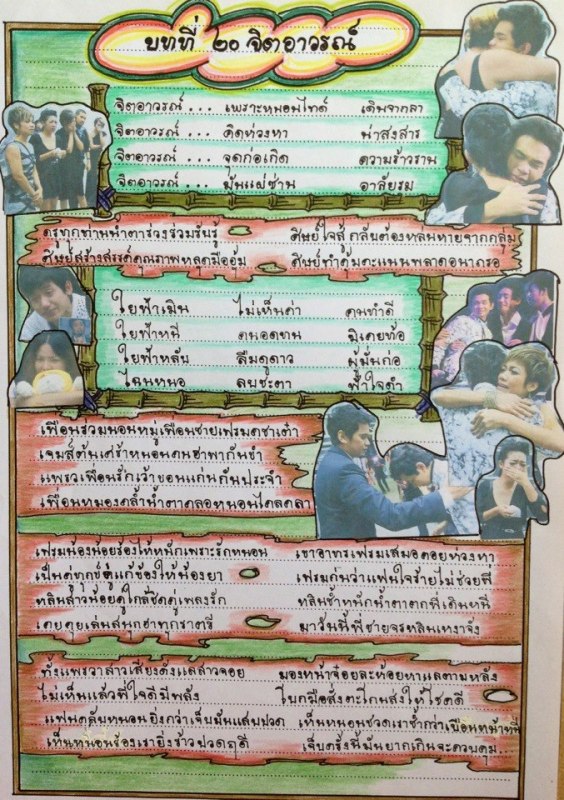 บทที่ ๒๐ จิตอาวรณ์
จิตอาวรณ์ ... เพราะหนอนไทด์ เดินจากลา
จิตอาวรณ์ ... คิดห่วงหา น่าสงสาร
จิตอาวรณ์ ... จุดก่อเกิด ความร้าวราน
จิตอาวรณ์ ... มันแผ่ซ่าน อาลัยรุม
ครูทุกท่านน้ำตาร่วงรวมรับรู้ ศิษย์ใจสู้กลับต้องหล่นหายจากกลุ่ม
ศิษย์สร้างสรรค์คุณภาพหลุดมืออุ้ม ศิษย์ทำคุ้มคะแนนพลาดอนาถรอ
ใยฟ้าเมิน ไม่เห็นค่า คนทำดี
ใยฟ้าหนี คนอดทน มิเคยท้อ
ใยฟ้าหลับ ลืมดูดาว ผู้มั่นก่อ
ไฉนหนอ ลบชะตา ฟ้าใจดำ
เพื่อนร่วมนอนหมู่เพื่อนชายเฟรมคชาเต๋า
เจมส์ต้นเศร้าหนอนคนฮาพากันขำ
แพรวเพื่อนรักเว้าขอนแก่นกันประจำ
เพื่อนหมองคล้ำน้ำตาคลอหนอนไคลคลา
เฟรมน้องน้อยร้องไห้หนักเพราะรักหนอน เขาอาทรเฟรมเสมอคอยห่วงหา
เป็นคู่ทุกข์คู่แก้ข้องให้น้องยา เฟรมครุ่นว่าแฟนใจร้ายไม่ช่วยพี่
หลินสาวน้อยดูใกล้ชิดคู่เพลงรัก หลินช้ำหนักน้ำตาตกพี่เดินหนี
เคยคุยเล่นสนุกฮาทุกราตรี มาวันนี้พี่ชายจรหลินเหงาจัง
ทั้งแพรวาสาวเสียงดังแลสาวจอย มองหน้าจ๋อยละห้อยหาแลตามหลัง
ไม่เห็นแล้วพี่ใจดีมีพลัง โบกมือสั่งตะโกนส่งให้โชคดี
แฟนคลับหนอนยิ่งกว่าเจ็บมันแสบปวด เห็นหนอนชวดเราช้ำกว่าเบือนหน้าหนี
เห็นหนอนร้องเรายิ่งร้าวปวดฤดี เจ็บครั้งนี้มันยากเกินจะควบคุม..